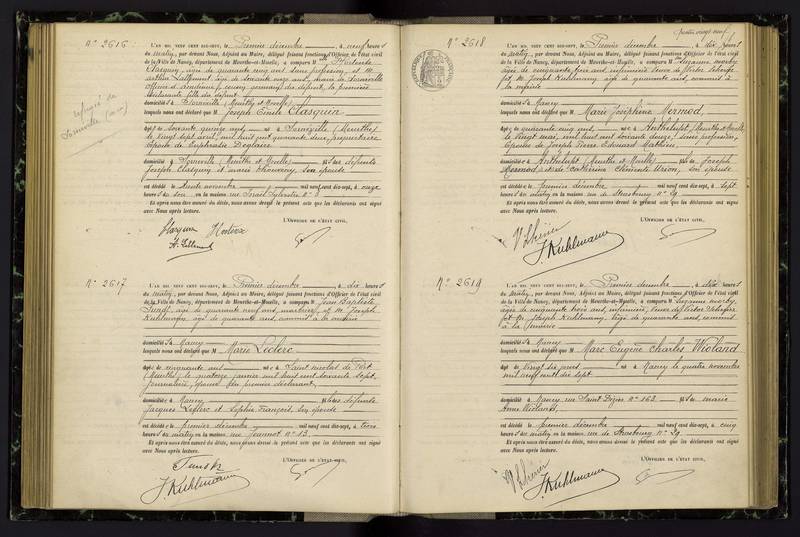 N° 2616
L'an mil neuf cent dix-sept, le Premier décembre, à neuf heures
du matin, par devant Nous, Adjoint au Maire, délégué faisant fonctions d'Officier de l'état civil
de la Ville de Nancy, département de Meurthe-et-Moselle, a comparu M
Clasquin, âgée de quarante cinq ans, sans profession, et M.
déclarante fille du défunt
domicilié à Sornéville (Meurthe et Moselle)
lesquels nous ont déclaré que M Joseph Emile Clasquin
âgé de soixante quinze ans né à Sornéville (Meurthe)
le vingt sept avril mil huit cent quarante deux, propriétaire
époux de Euphrasie Deglaire
domicilié à Sorneville (Meurthe et Moselle) fils des défunts
Joseph Clasquin et Marie Chouveny, son épouse
est décédé le trente novembre mil neuf cent dix-sept, à onze
heures du soir en sa maison rue Israël Sylvestre n° 3
Et après nous être assuré du décès, nous avons dressé le présent acte que les déclarants ont signé
avec Nous après lecture.
L'Officier de l'état civil,
refugié de
Sornéville
N° 2617
L'an mil neuf cent dix-sept, le Premier décembre, à dix heures
du matin, par devant Nous, Adjoint au Maire, délégué faisant fonctions d'Officier de l'état civil
de la Ville de Nancy, département de Meurthe-et-Moselle, a comparu M Jean Baptiste
âgé de quarante neuf ans, et M. Joseph
Kuhlmann, âgé de quarante ans, commis à la mairie
domicilié à Nancy
lesquels nous ont déclaré que M Marie Leclerc
âgée de cinquante ans née à Saint Nicolas de Port
(Meurthe) le quatorze janvier mil huit cent soixante sept,
journalière, épouse du premier déclarant
domiciliée à Nancy fille des défunts
Jacques Leclerc et Sophie François, son épouse
est décédée le premier décembre mil neuf cent dix-sept, à trois
heures du matin en sa maison rue Jeannot n° 13
Et après nous être assuré du décès, nous avons dressé le présent acte que les déclarants ont signé
avec Nous après lecture.
L'Officier de l'état civil,
J. Kuhlmann
N° 2618
L'an mil neuf cent dix-sept, le Premier décembre, à dix heures
du matin, par devant Nous, Adjoint au Maire, délégué faisant fonctions d'Officier de l'état civil
de la Ville de Nancy, département de Meurthe-et-Moselle, a comparu M Suzanne
âgée de cinquante trois ans, infirmière, veuve de Victor
et M. Joseph Kuhlmann, âgé de quarante ans, commis à
la mairie
domicilié à Nancy
lesquels nous ont déclaré que M Marie Joséphine Mermod
âgée de quarante cinq ans née à Anthelupt (Meurthe et Moselle)
le vingt mai mil huit cent soixante douze, sans profession,
épouse de Joseph Pierre Edouard Mathieu
domiciliée à Anthelupt (Meurthe et Moselle) fille de Joseph
Mermod et de Catherine Clémente Urion, son épouse
est décédée le premier décembre mil neuf cent dix-sept, à sept
heures du matin en la maison rue de Strasbourg n° 29
Et après nous être assuré du décès, nous avons dressé le présent acte que les déclarants ont signé
avec Nous après lecture.
L'Officier de l'état civil,
J. Kuhlmann
N° 2619
L'an mil neuf cent dix-sept, le Premier décembre, à dix heures
du matin, par devant Nous, Adjoint au Maire, délégué faisant fonctions d'Officier de l'état civil
de la Ville de Nancy, département de Meurthe-et-Moselle, a comparu M Suzanne
âgée de cinquante trois ans, infirmière, veuve de Victor
et M. Joseph Kuhlmann, âgé de quarante ans, commis
à la mairie
domicilié à Nancy
lesquels nous ont déclaré que M Marc Eugène Charles Wioland
âgé de vingt six jours né à Nancy le quatre novembre
mil neuf cent dix sept
domicilié à Nancy rue Saint Dizier n° 162 fils de Marie
Anne Wioland
est décédé le premier décembre mil neuf cent dix-sept, à cinq
heures du matin en la maison rue de Strasbourg n° 29
Et après nous être assuré du décès, nous avons dressé le présent acte que les déclarants ont signé
avec Nous après lecture.
L'Officier de l'état civil,
J. Kuhlmann